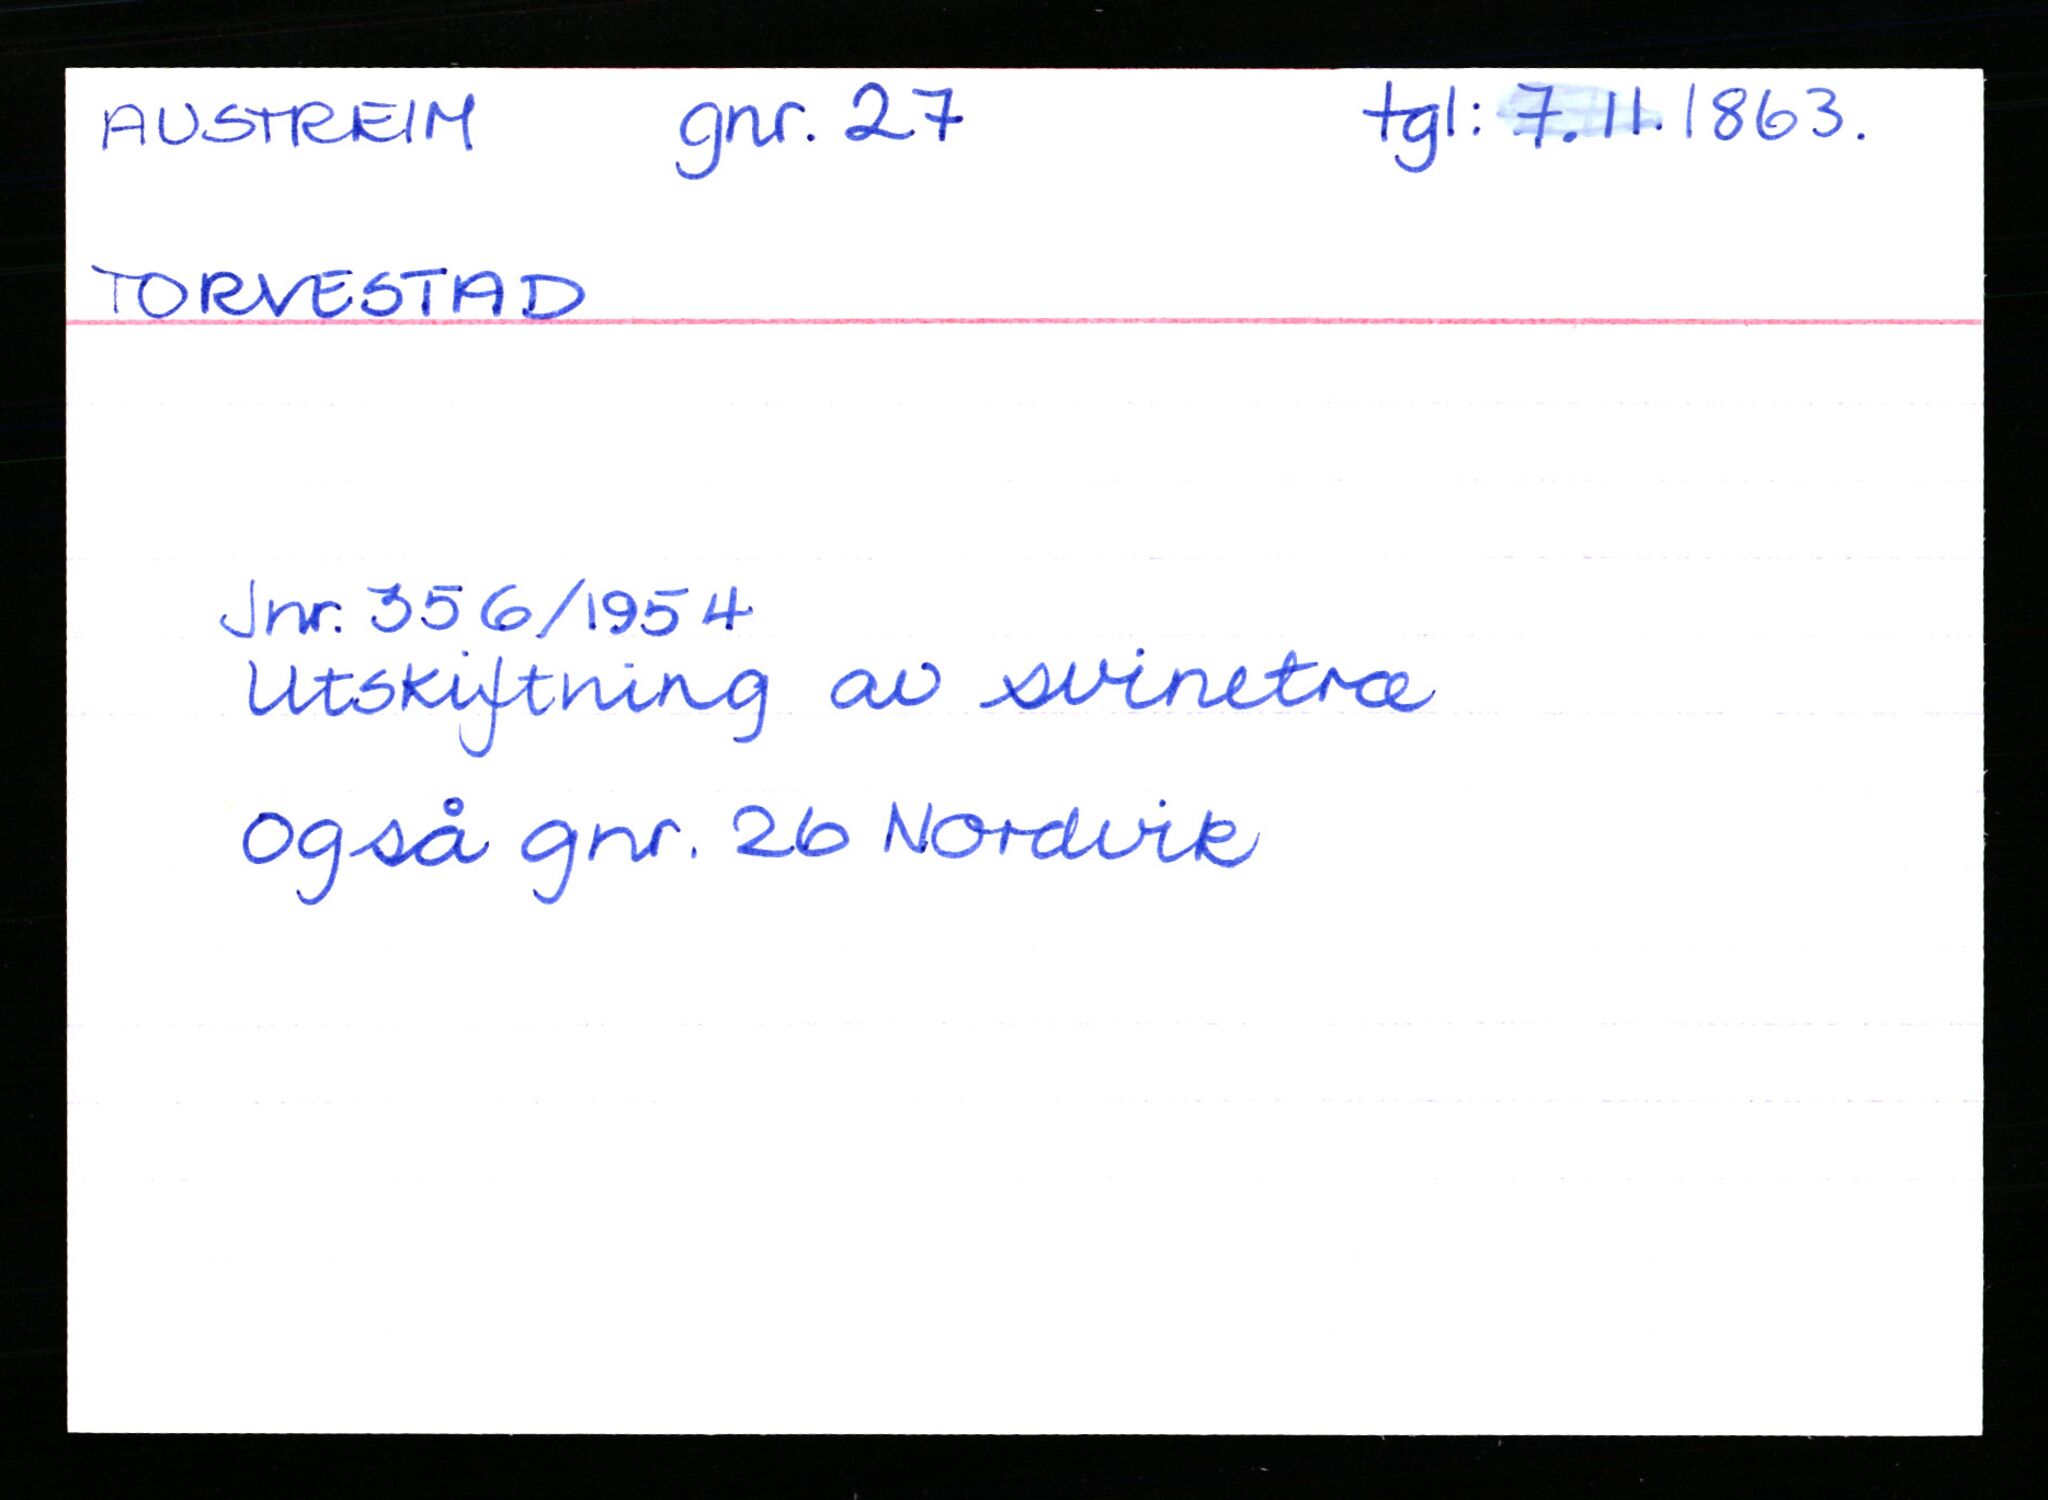 AUSTREIM gnr. 27 tgl: 7.11.1863.
TORVESTAD
Jnr. 356/1954
Utskiftning av svinetræ
Også gnr. 26 Nordvik